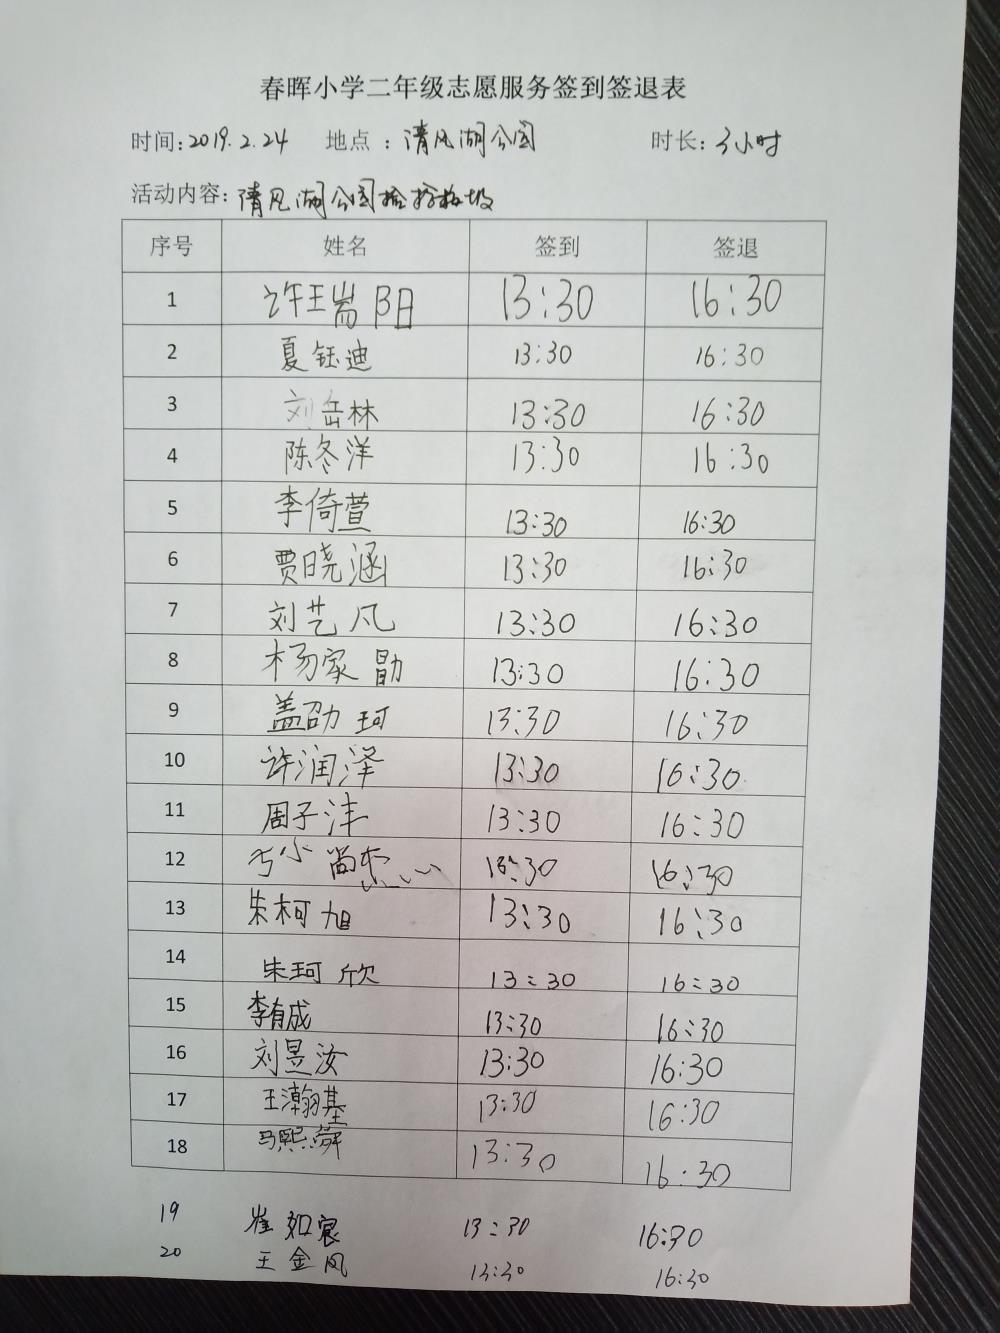 春晖小学二年级志愿服务签到签退表
时间:2019.2.24 地点：清风湖公园 时长:3小时
活动内容:清风湖公园捡拾垃圾
序号 姓名 签到 签退
1 许王嵩阳 13:30 16:30
2 夏钰迪 13:30 16:30
3 刘岳林 13:30 16:30
4 陈冬洋 13:30 16:30
5 李倚萱 13:30 16:30
6 贾晓涵 13:30 16:30
7 刘艺凡 13:30 16:30
8 杨家勖 13:30 16:30
9 盖邵珂 13:30 16:30
10 许润泽 13:30 16:30
11 周子沣 13:30 16:30
12 13:30 16:30
13 朱柯旭 13:30 16:30
14 朱珂欣 13:30 16:30
15 李有成 13:30 16:30
16 刘昱汝 13:30 16:30
17 王瀚基 13:30 16:30
18 马熙舜 13:30 16:30
19 崔如宸 13:30 16:30
20 王金凤 13:30 16:30